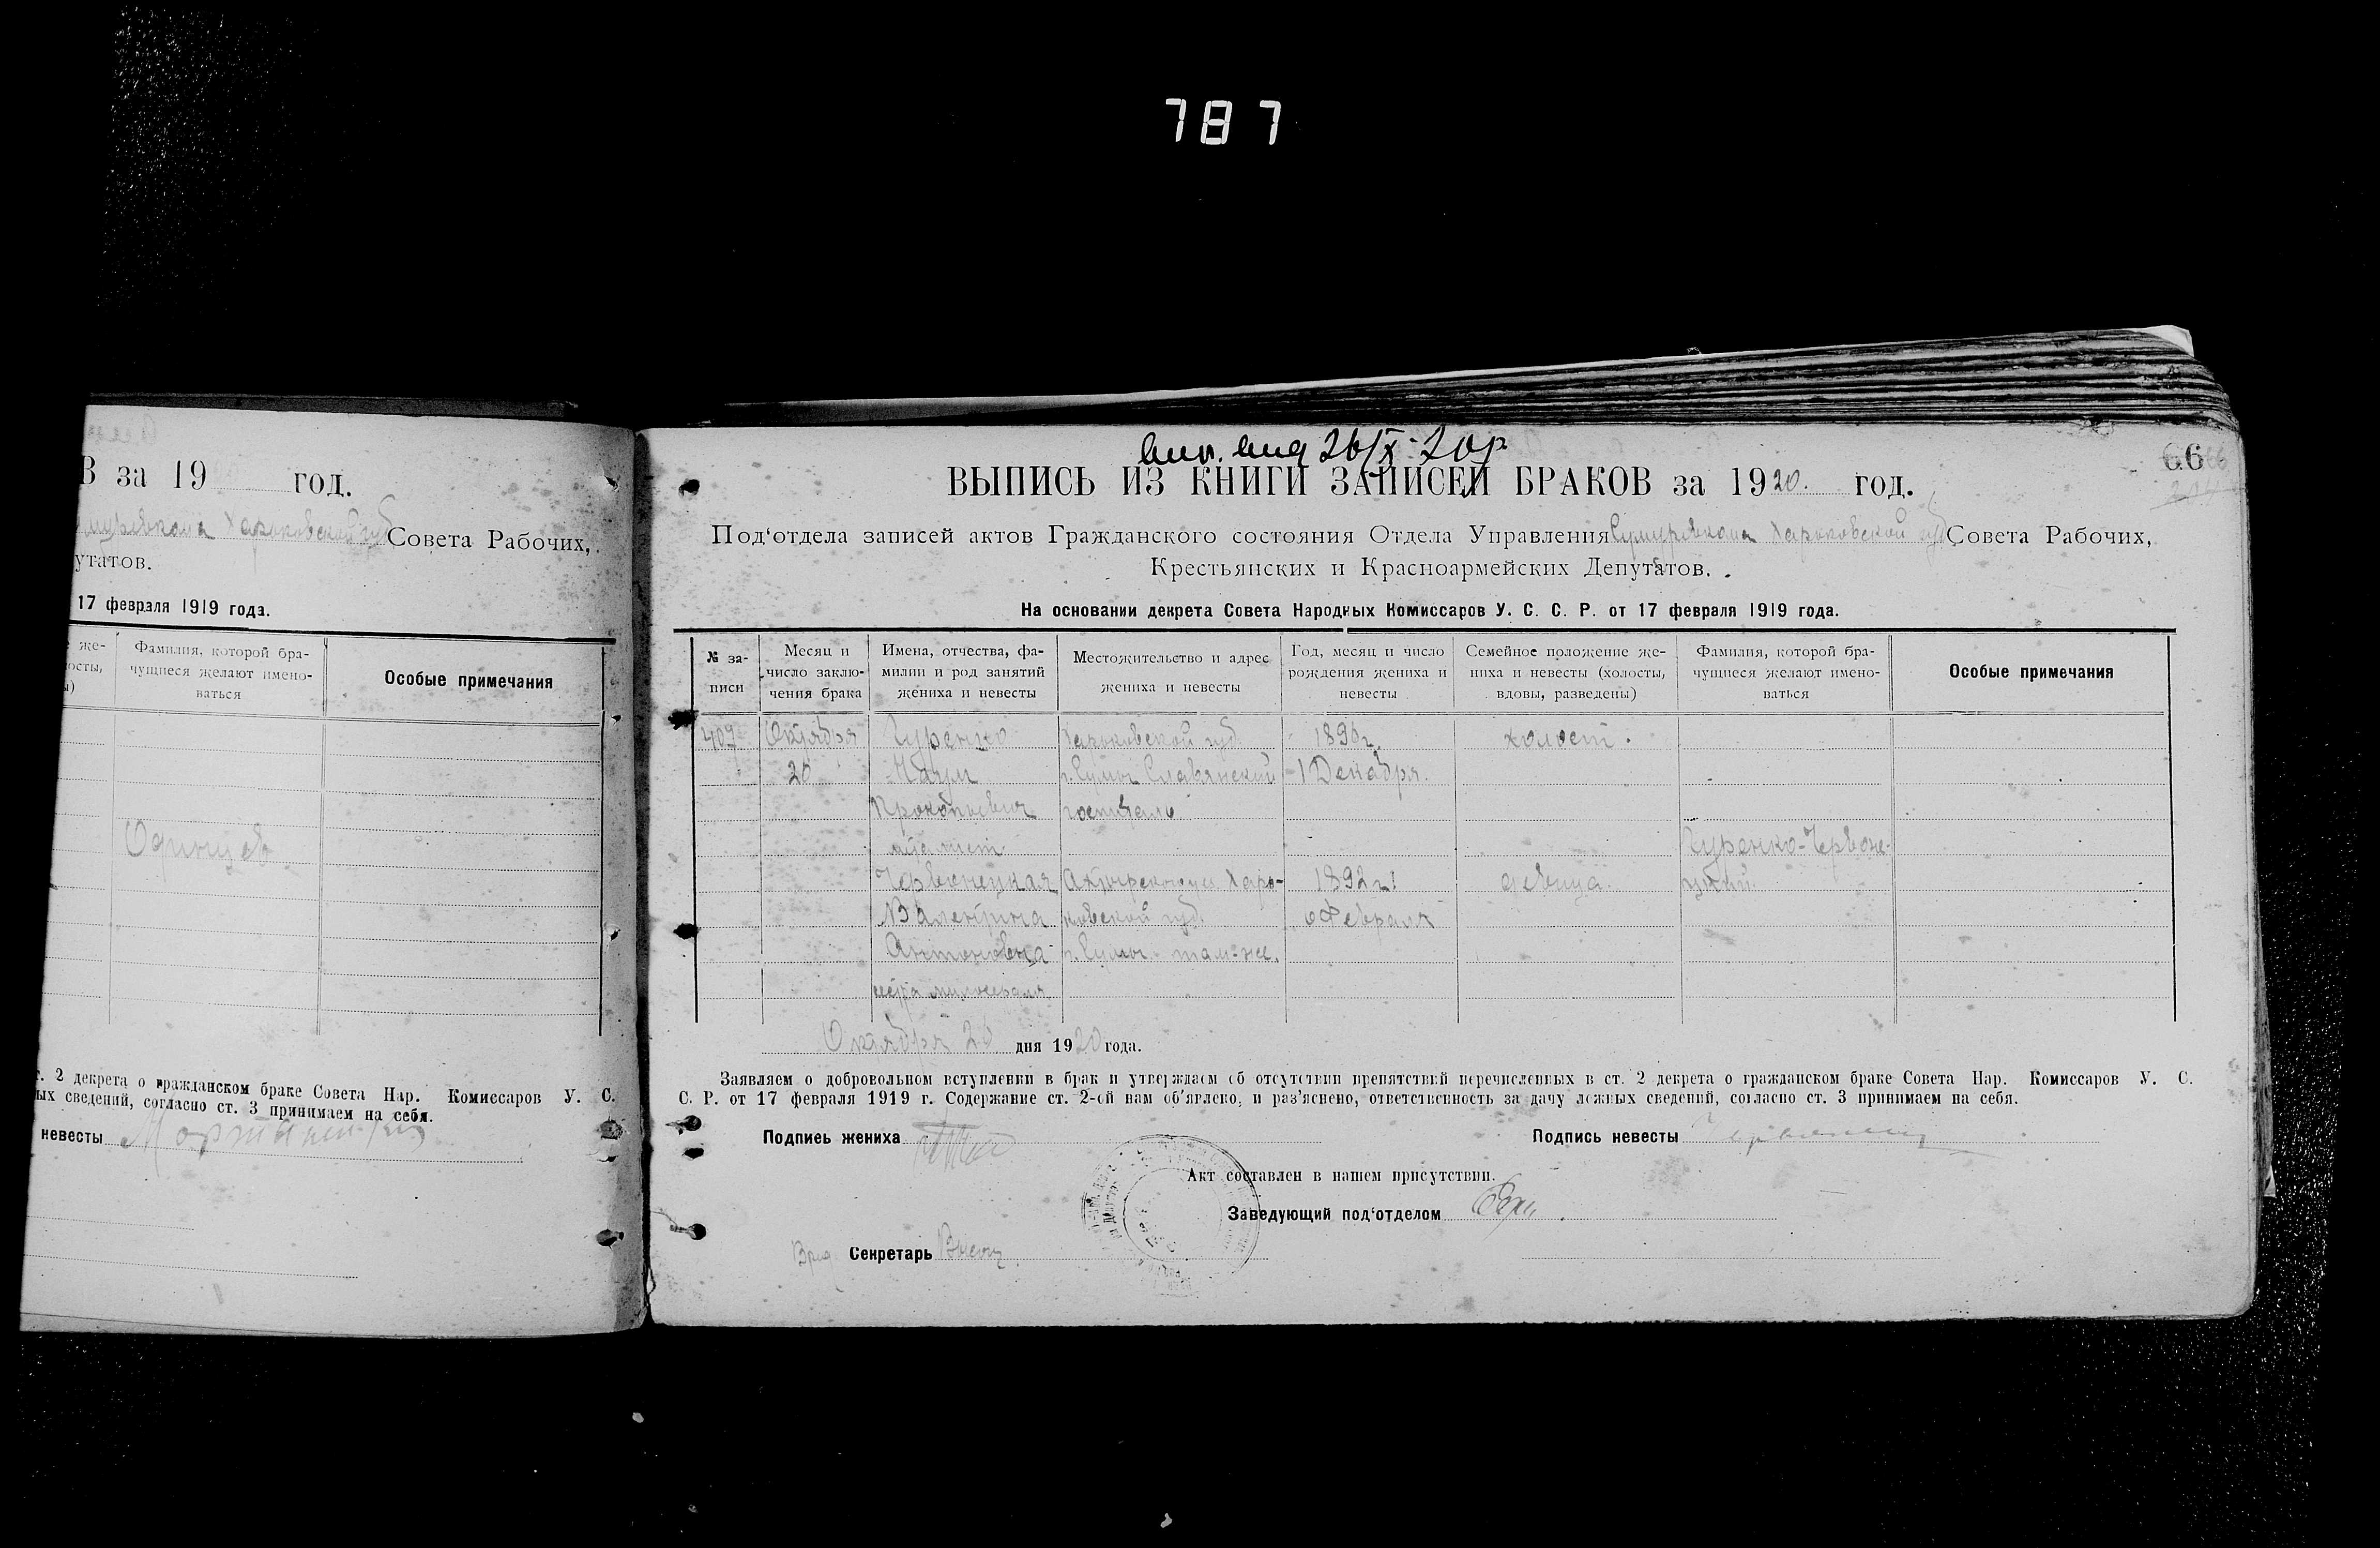 787
В за 19 год.
Харьковской губ Совета Рабочих,
утатов.
17 февраля 1919 года.
же-
Фамилия, которой бра-
чущиеся желают имено-
ваться
Особые примечания
Одинцев
т. 2 декрета о гражданском браке Совета Нар. Комиссаров У. С.
ых сведений, согласно ст. 3 принимаем на себя.
невесты
66
ВЫПИСЬ ИЗ КНИГИ ЗАПИСЕЙ БРАКОВ за 1920. год.
Под‘отдела записей актов Гражданского состояния Отдела Управления Харьковской губ Совета Рабочих,
Крестьянских и Красноармейских Депутатов.
На основании декрета Совета Народных Комиссаров У. С. С. Р. от 17 февраля 1919 года.
№ за-
писи
Месяц и
число заклю-
чения брака
Имена, отчества, фа-
милии и род занятий
жениха и невесты
Местожительство и адрес
жениха и невесты
Год, месяц и число
рождения жениха и
невесты
Семейное положение же-
ниха и невесты (холосты,
вдовы, разведены)
Фамилия, которой бра-
чущиеся желают имено-
ваться
Особые примечания
409 Октября Гуренко Харьковской губ. холост.
г. Сумы Славянский 1 Декабря.
Прокопьевич госпиталь
Гуренко-Червоне-
Червонецкая Харь- 1892 г. девица. цкий.
Валентина ковской губ. Февраля
Антоновна г. Сумы там-же.
сестра милосердия
Октября 26 дня 1920 года.
Заявляем о добровольном вступлении в брак и утверждаем об отсутствии препятствий перечисленных в ст. 2 декрета о гражданском браке Совета Нар. Комиссаров У. С.
С. Р. от 17 февраля 1919 г. Содержание ст. 2-ой нам об‘явлено, и раз‘яснено, ответственность за дачу ложных сведений, согласно ст. 3 принимаем на себя.
Подпись жениха
Подпись невесты
Акт составлен в нашем присутствии.
Заведующий под‘отделом
Секретарь